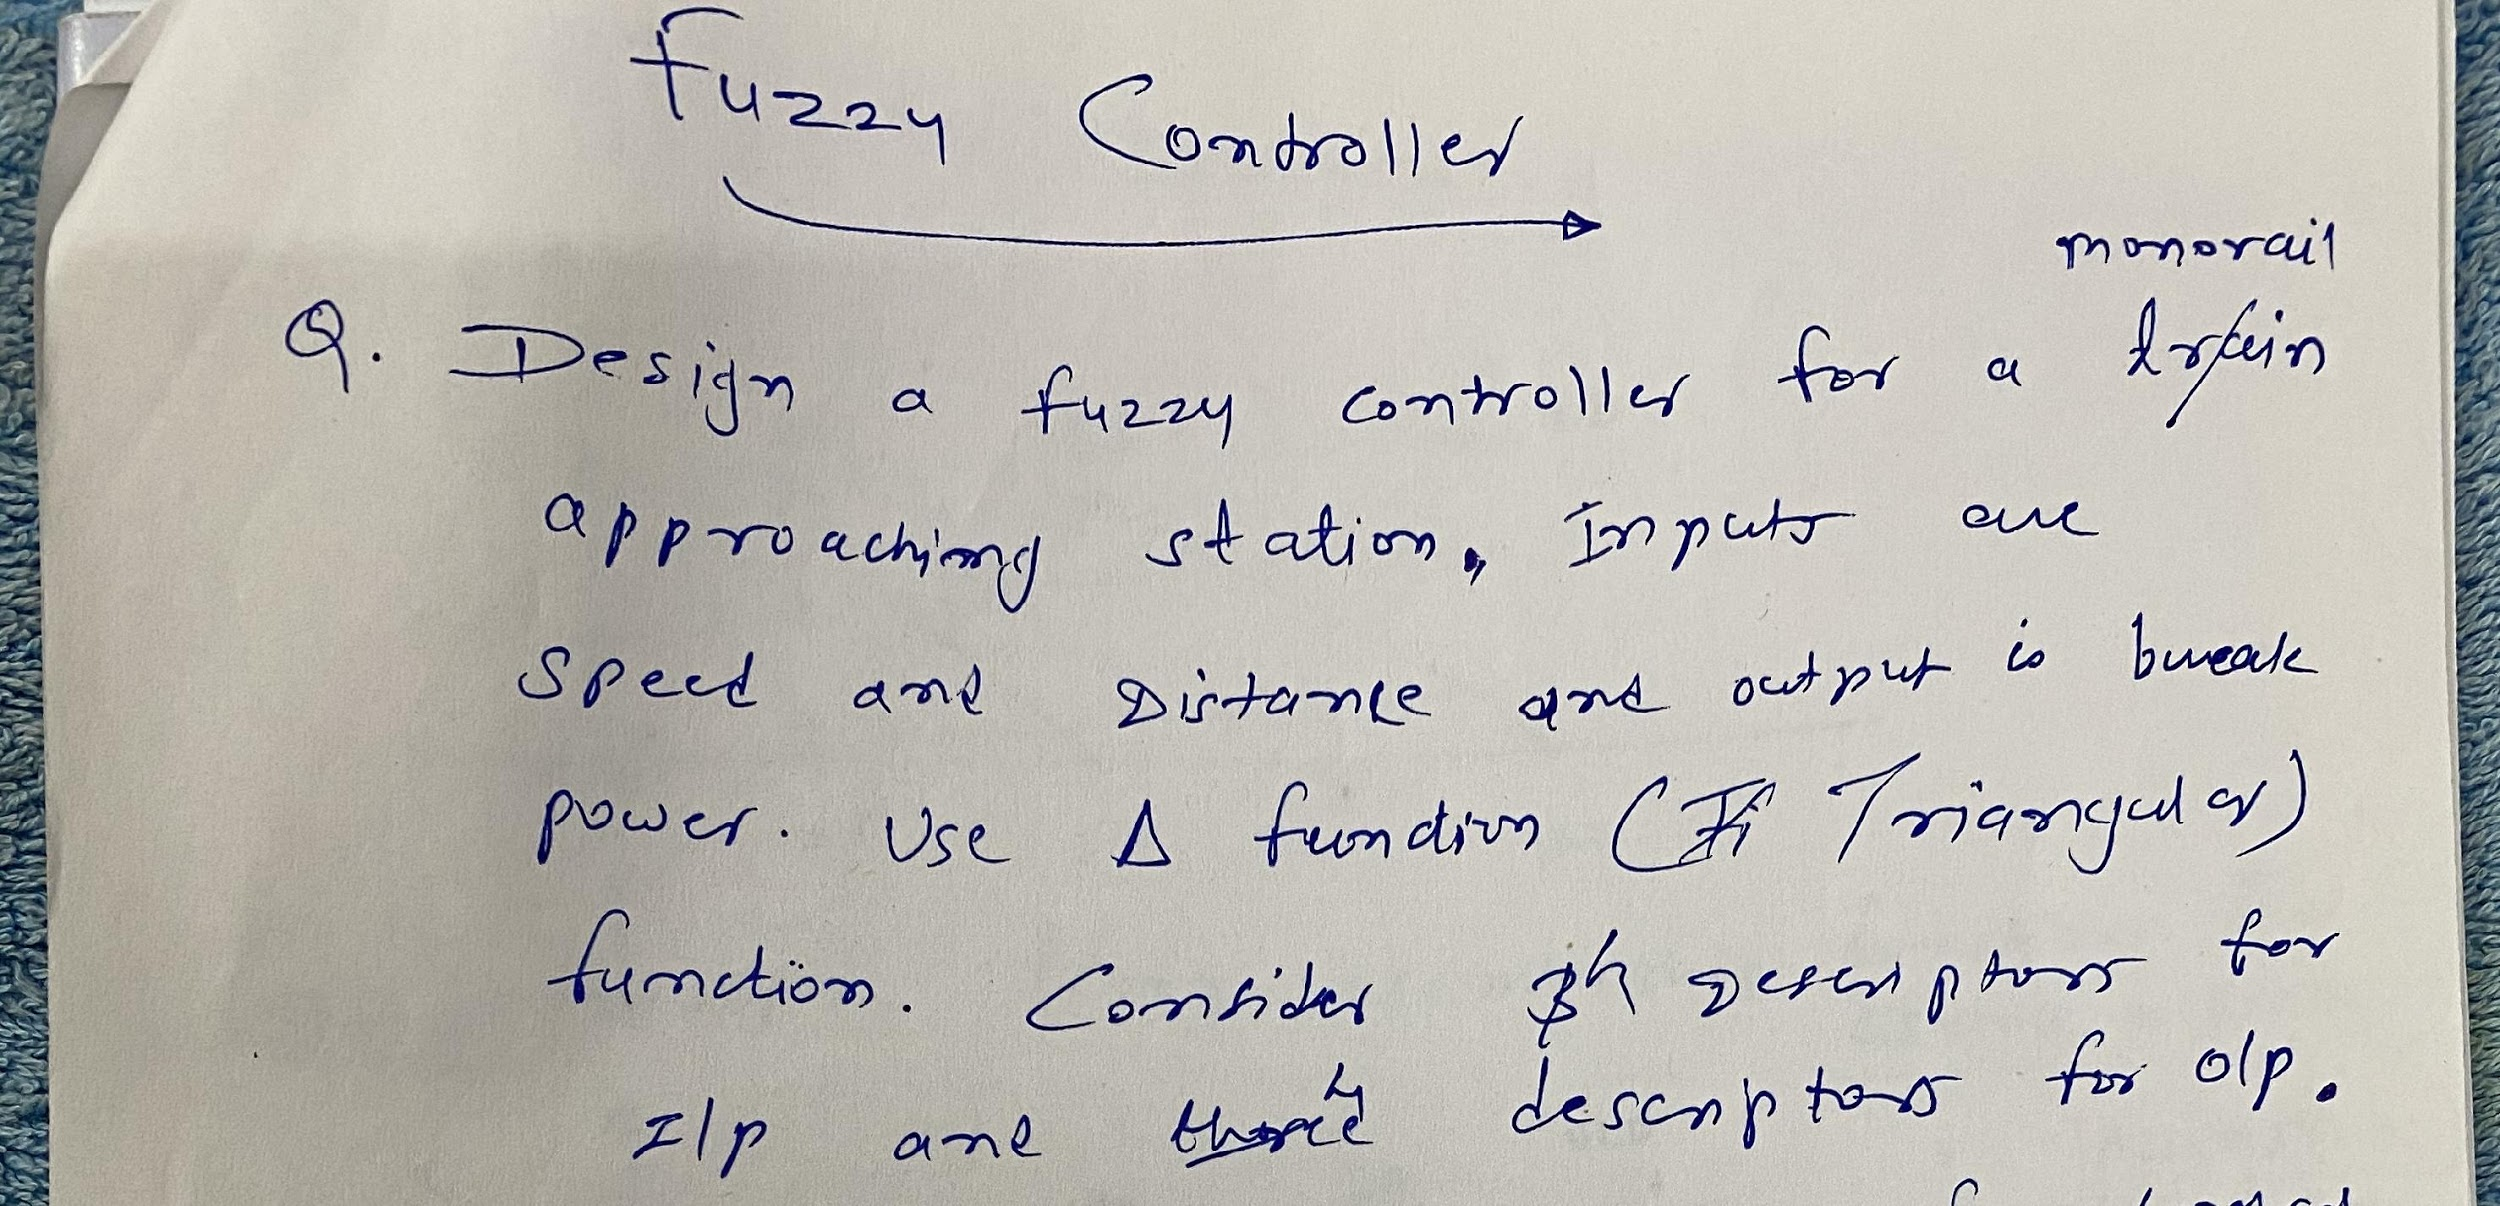 Fuzzy Controller
monorail
Q. Design a fuzzy controller for a train
approaching station, Inputs are
Speed and Distance and output is break
power. Use Δ function (Triangular)
function. Consider 4 Descriptors for
I/p and 4 descriptors for o/p.